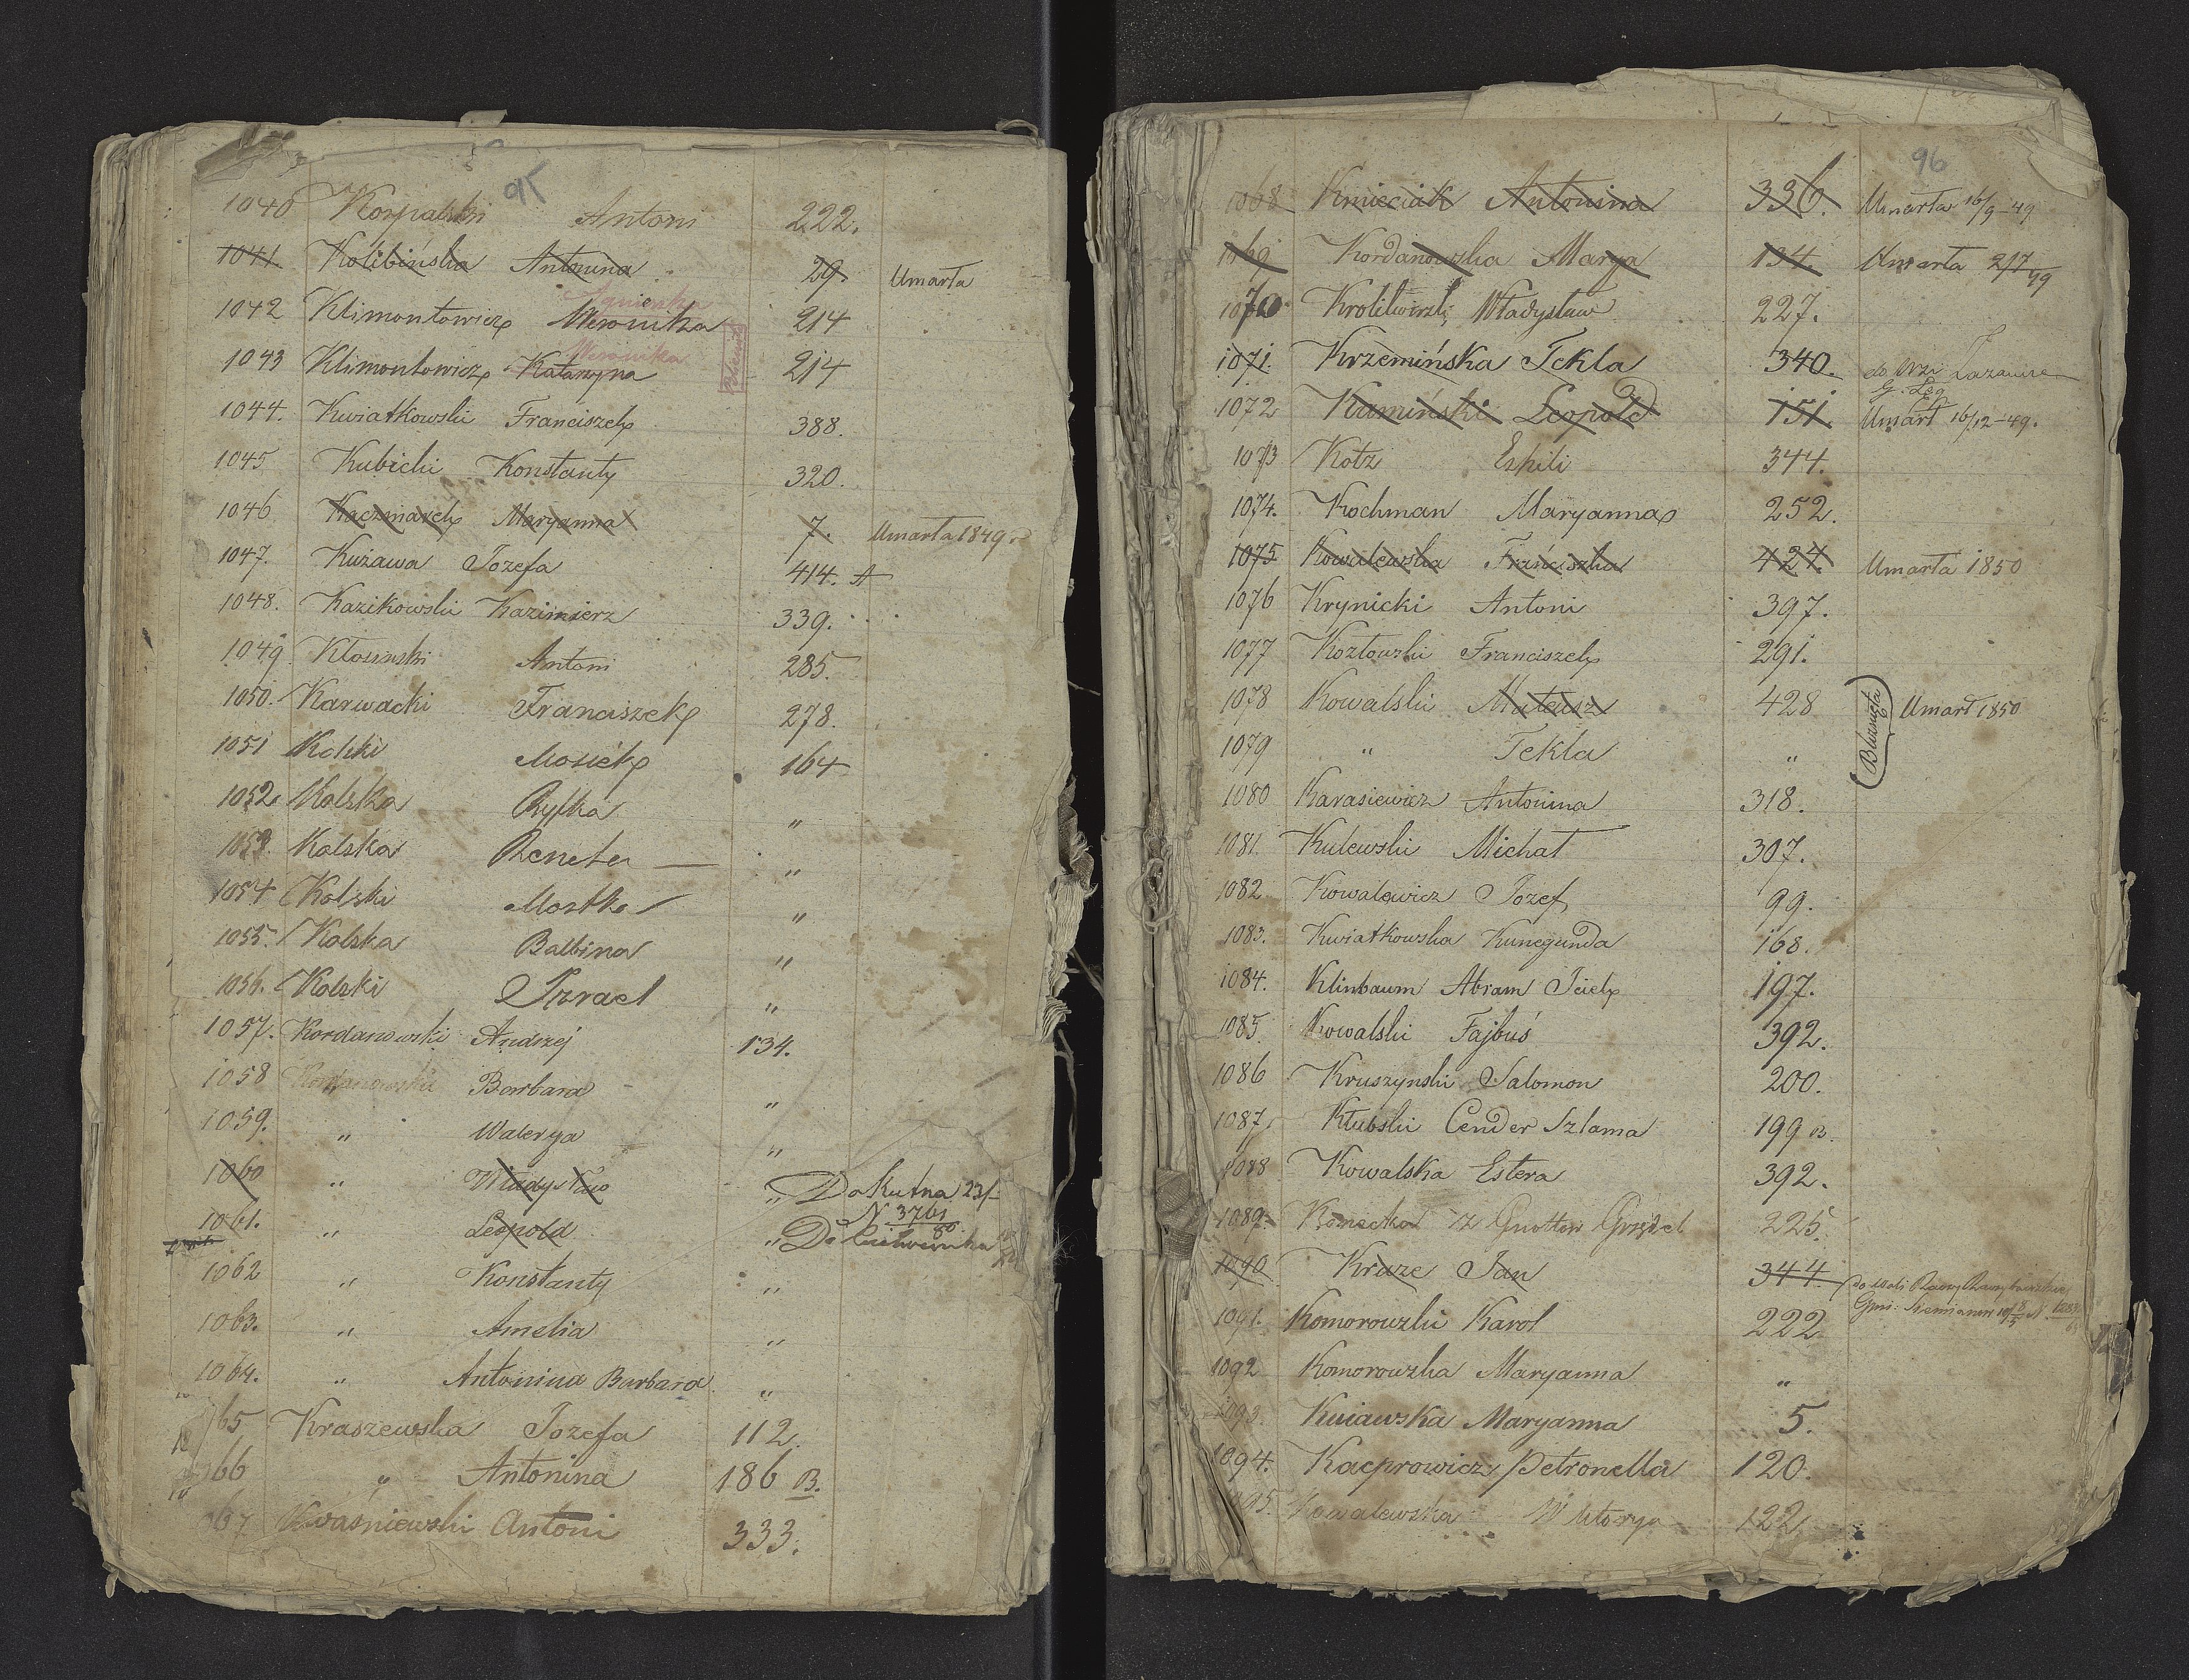 95
1040 Korpalski Antoni 222.
1041. Kolibińska Antonina 29 Umarła
Agnieszka
1042 Klimontowicz Weronika 214
Weronika
1043 Klimontowicz Katarzyna 214
1044. Kwiatkowski Franciszek 388.
1045 Kubicki Konstanty 320.
1046 Kaczmarek Maryanna 7. Umarła 1849 r
1047. Kużawa Józefa 414. A
1048. Kazikowski Kazimierz 339.
1049. Kłosinski Antoni 285.
1050. Karwacki Franciszek 278.
1051 Kolski Mosiek 164
1052 Kolska Ryfka "
1053. Kolska Reneta "
1054 Kolski Mostke "
1055. Kolska Balbina "
1056. Kolski Izrael "
1057. Kordanowski Andrzej 134.
1058 Kordanowska Barbara "
1059. " Walerya "
1060 " Władysław " Do Kutna 23/
N 3761/80
1061. " Leopold " Do
1062 " Konstanty "
1063. " Amelia "
1064. " Antonina Barbara "
1065 Kraszewska Józefa 112.
1066 " Antonina 186 B.
1067 Kwaśniewski Antoni 333.
96
1068 Kmieciak Antonina 336. Umarła 16/9-49
1069 Kordanowska Marya 134. Umarła 2/7 49
1070 Krolikowski Władysław 227.
1071. Krzemińska Tekla 340. do wsi Łazanie
G. Łęg
1072 Kamiński Leopold 151. Umarł 16/12-49.
1073 Kotz Eshili 344.
1074. Kochman Maryanna 252.
1075 Kowalewska Franciszka 424. Umarła 1850
1076 Krynicki Antoni 397.
1077 Kozłowski Franciszek 291.
1078 Kowalski Mateusz 428 Bliźnięta Umarł 1850
1079 " Tekla "
1080 Karasiewicz Antonina 318.
1081. Kulewski Michał 307.
1082. Kowalewicz Józef 99.
1083. Kwiatkowska Kunegunda 168.
1084. Klinbaum Abram Iciek 197.
1085. Kowalski Fajbuś 392.
1086 Kruszynski Salomon 200.
1087. Kłubski Cender Szlama 199 B.
1088 Kowalska Estera 392.
1089. Konecka z Gnottow 225.
1090 Kruze Jan 344. do Woli
1091. Komorowski Karol 222
1092 Komorowska Maryanna "
1093. Kuiawska Maryanna 5.
1094. Kacprowicz Petronella 120.
1095. Kowalewska Wiktorya 122.